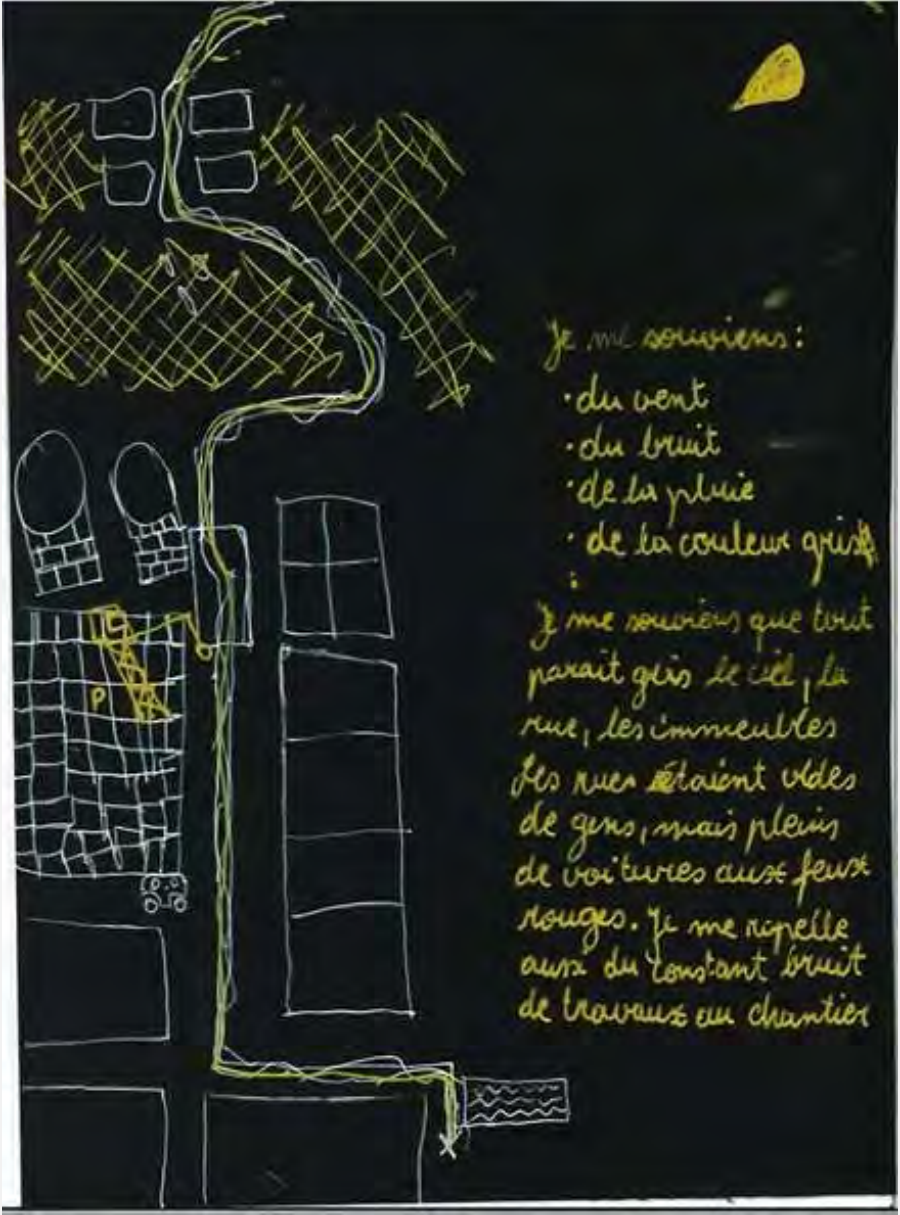 P
Je me souviens:
• du vent
• du bruit
• de la pluie
• de la couleur grise
:
Je me souviens que tout
parait gris le ciel, la
rue, les immeubles
Les rues étaient vides
de gens, mais pleins
de voitures aux feux
rouges. Je me rapelle
aussi du constant bruit
de travaux au chantier